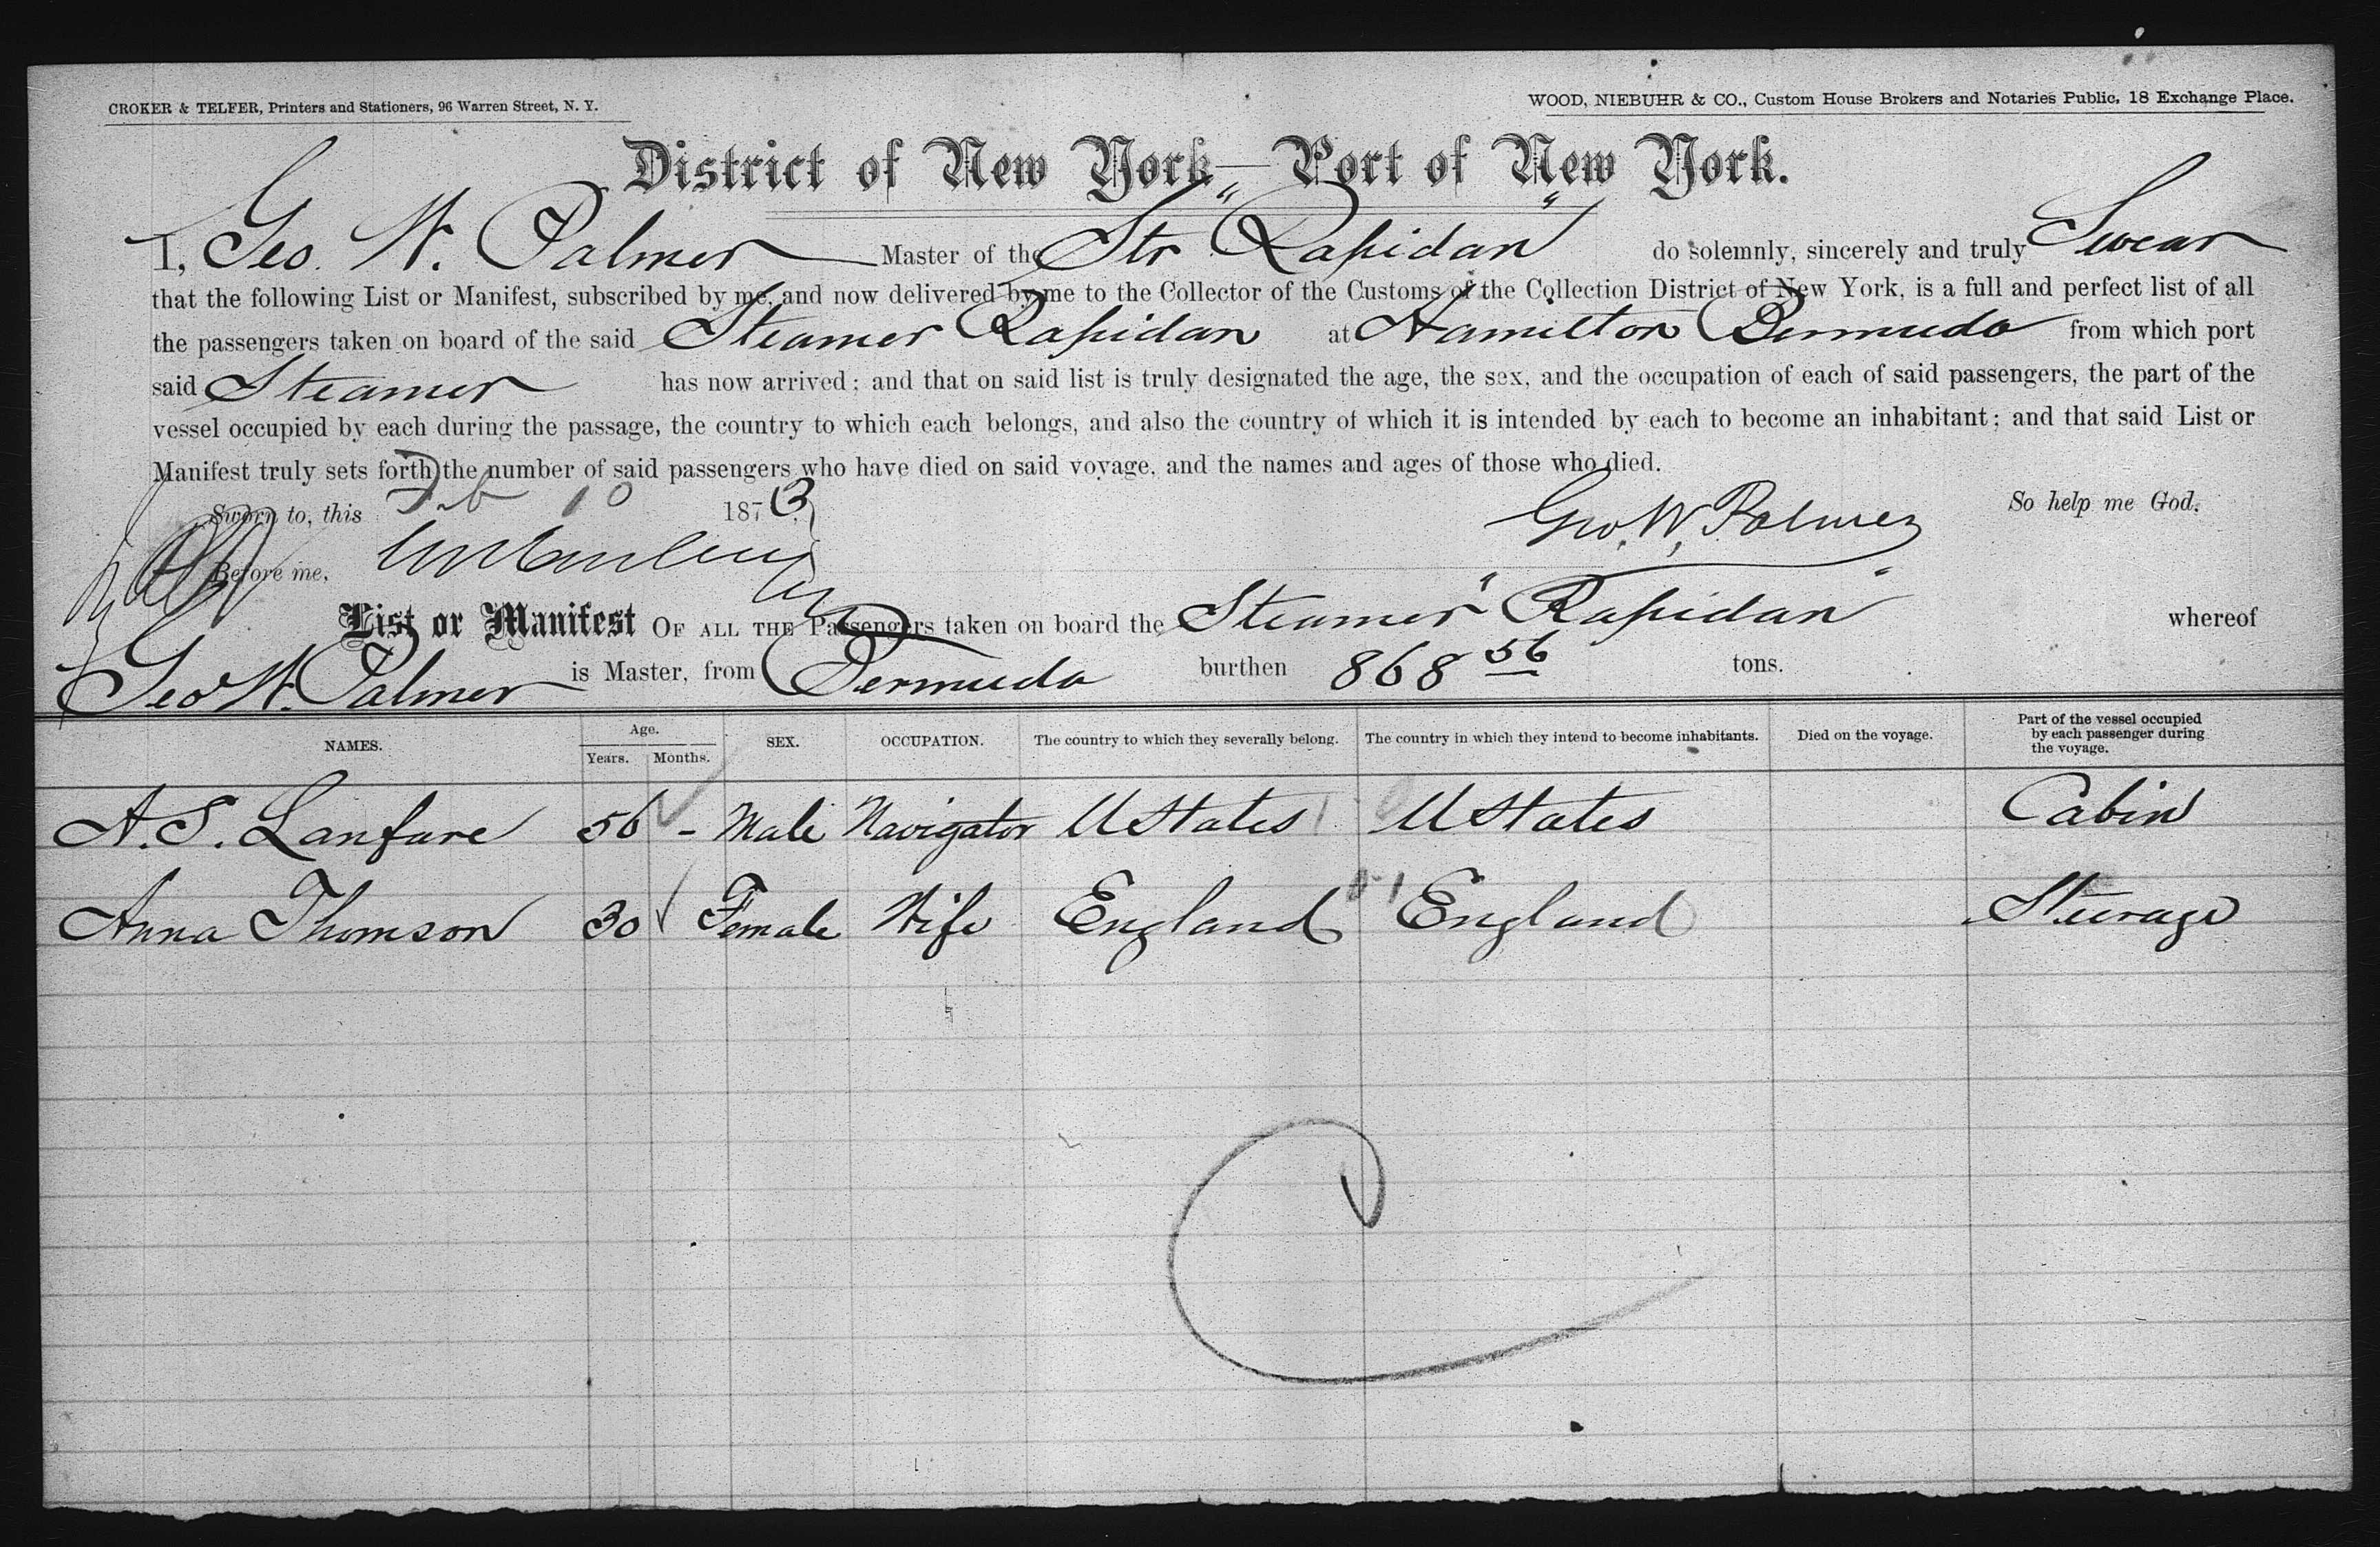 CROKER & TELFER, Printers and Stationers, 96 Warren Street, N. Y.
WOOD, NIEBUHR & CO., Custom House Brokers and Notaries Public, 18 Exchange Place.
District of New York—Port of New York.
I, Geo. W. Palmer Master of the Str "Rapidan" do solemnly, sincerely and truly Swear
that the following List or Manifest, subscribed by me, and now delivered by me to the Collector of the Customs of the Collection District of New York, is a full and perfect list of all
the passengers taken on board of the said Steamer Rapidan at Hamilton Bermuda from which port
said Steamer has now arrived; and that on said list is truly designated the age, the sex, and the occupation of each of said passengers, the part of the
vessel occupied by each during the passage, the country to which each belongs, and also the country of which it is intended by each to become an inhabitant; and that said List or
Manifest truly sets forth the number of said passengers who have died on said voyage, and the names and ages of those who died.
Sworn to, this Feb 10 1873 So help me God.
Geo. W. Palmer
Before me,
List or Manifest OF ALL THE Passengers taken on board the Steamer "Rapidan" whereof
Geo W. Palmer is Master, from Bermuda burthen 868 56 tons.
NAMES. Age. Years. Months. SEX. OCCUPATION. The country to which they severally belong. The country in which they intend to become inhabitants. Died on the voyage. Part of the vessel occupied by each passenger during the voyage.
A. S. Lanfare 56 - Male Navigator U States U States Cabin
Anna Thomson 30 Female Wife England England Steerage